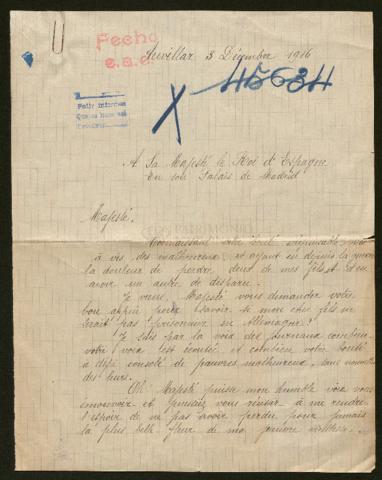 Fecho
e.a.c.
Auvillar 3 Décembre 1916
45634
Pedir informes
X
A Sa Majesté le Roi d'Espagne
En son Palais de Madrid
PATRIMONIO
Majesté.
Connaissant votre bonté
à vis des malheureux, et ayant eu depuis la guerre
la douleur de perdre deux de mes fils et d'en
avoir un autre de disparu.
Je viens, Majesté vous demander votre
bon appui pour savoir si mon cher fils ne
serait pas prisonnier en Allemagne.
Je sais par la voix des journaux combien
votre voix est écoutée et combien votre bonté
a déjà consolé de pauvres malheureux, sans nouvelles
des leurs.
Oh! Majesté puisse mon humble voix vous
émouvoir et puissiez vous réussir à me rendre
l'espoir de ne pas avoir perdu pour jamais
la plus belle fleur de ma pauvre